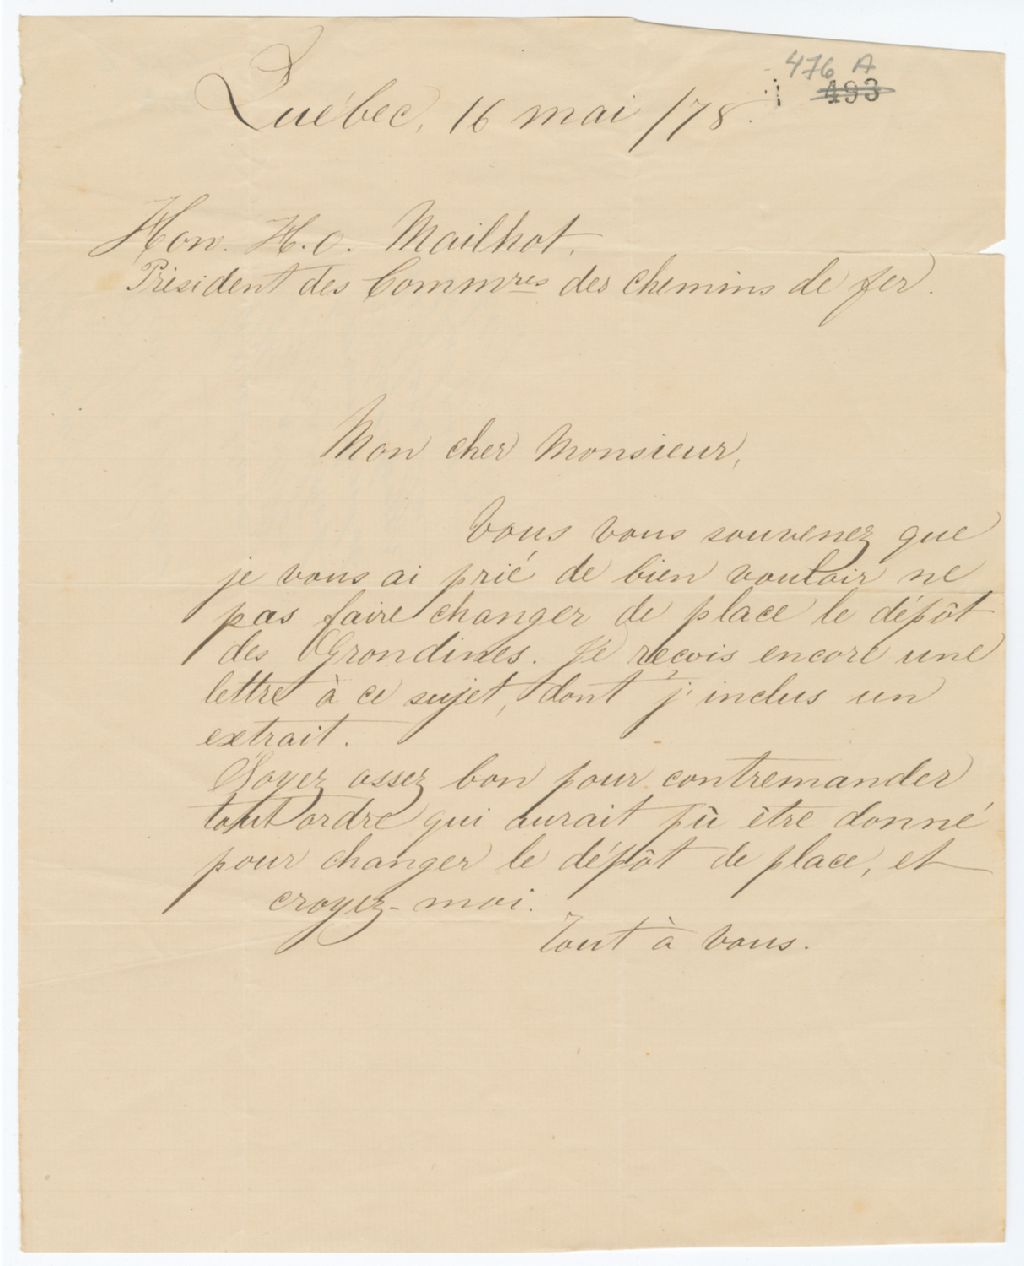 476 A
493
Québec, 16 mai /78.
Hon. H. O. Mailhot,
Président des Commres des chemins de fer.
Mon cher Monsieur,
Vous vous souvenez que
je vous ai prié de bien vouloir ne
pas faire changer de place le dépôt
des Grondines. Je reçois encore une
lettre à ce sujet, dont j'inclus un
extrait.
Soyez assez bon pour contremander
tout ordre qui aurait pû être donné
pour changer le dépôt de place, et
croyez-moi.
Tout à vous.